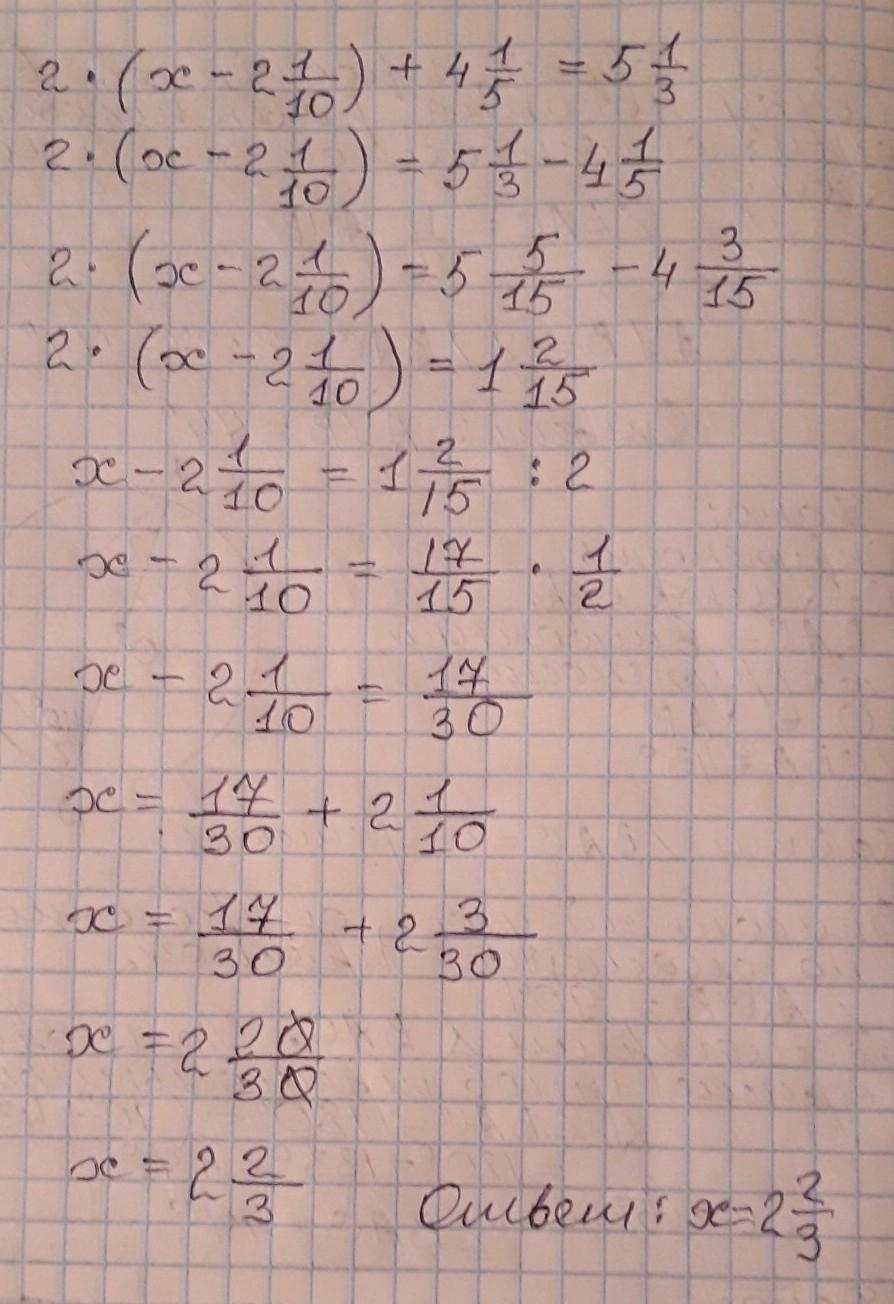 2 · (x - 2 1/10) + 4 1/5 = 5 1/3
2 · (x - 2 1/10) = 5 1/3 - 4 1/5
2 · (x - 2 1/10) = 5 5/15 - 4 3/15
2 · (x - 2 1/10) = 1 2/15
x - 2 1/10 = 1 2/15 : 2
x - 2 1/10 = 17/15 · 1/2
x - 2 1/10 = 17/30
x = 17/30 + 2 1/10
x = 17/30 + 2 3/30
x = 2 20/30
x = 2 2/3
Ответ: x = 2 2/3